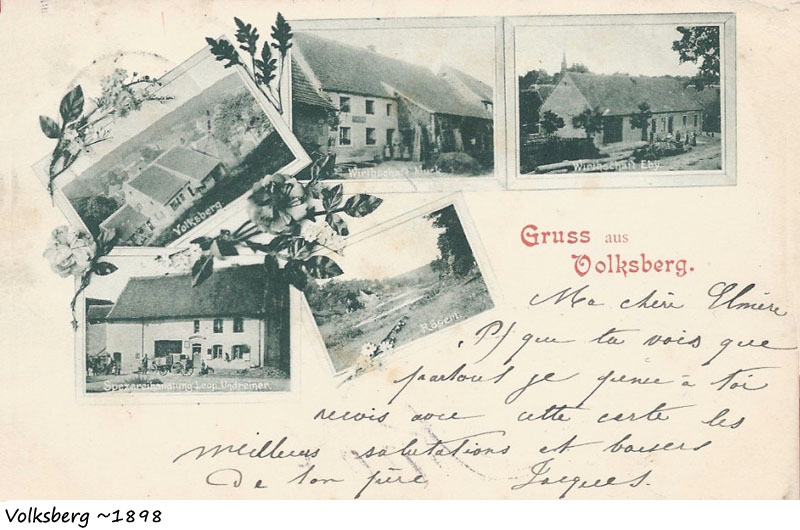 Volksberg
Wirthschaft Muck
Wirthschaft Eby
Spezereihandlung Leop. Undreiner.
Gruss aus
Volksberg.
Ma chère
que tu vois que
partout je à toi
reçois avec cette carte les
meilleurs salutations et baisers
De ton père Jacques.
Volksberg ~1898